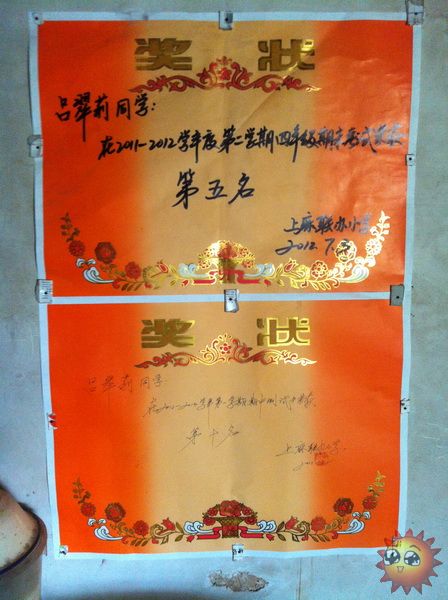 奖 状
吕翠莉同学：
在2011-2012学年度第二学期四年级期末考试荣获
第五名
上麻联办小学
2012.7.
奖 状
吕翠莉同学
在2011-2012学年第一学期期中测试中荣获
第十名
上麻联办小学